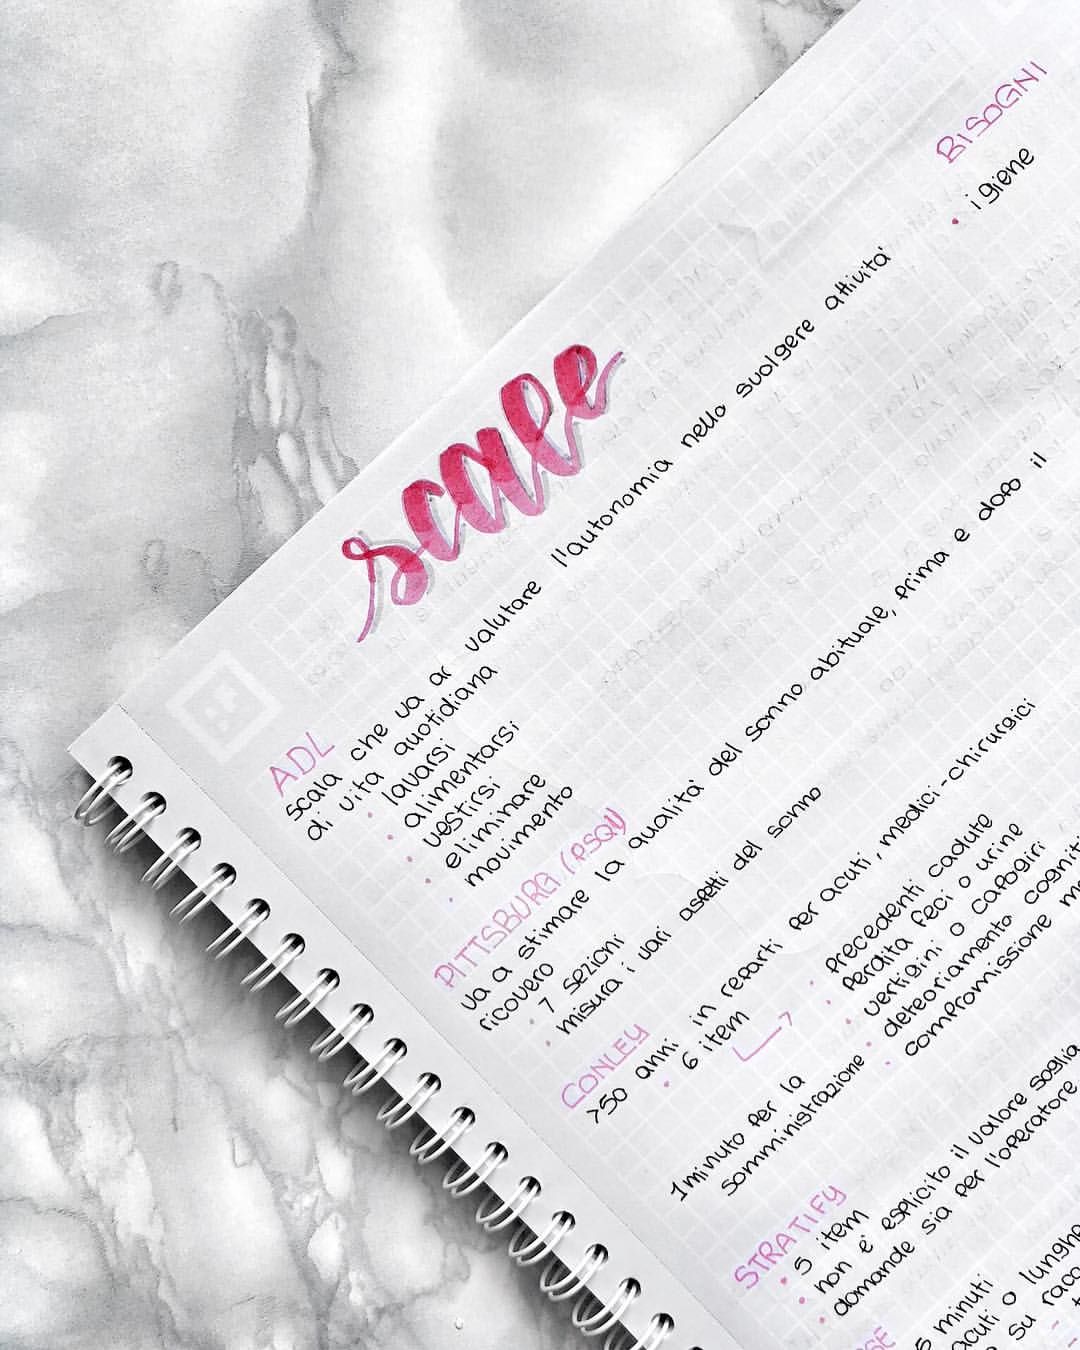 scale
BISOGNI
• igiene
ADL
scala che va a valutare l'autonomia nello svolgere attivita'
di vita quotidiana
• lavarsi
• alimentarsi
• vestirsi
• eliminare
• movimento
PITTSBURG (PSQI)
va a stimare la qualita' del sonno abituale, prima e dopo il
ricovero
• 7 sezioni
• misura i vari aspetti del sonno
CONLEY
>50 anni in reparti per acuti, medici-chirurgici
• 6 item
• precedenti cadute
• perdita feci o urine
• vertigini o capogiri
• deteoriamento
• compromissione
1 minuto per la
somministrazione
STRATIFY
• 5 item
• non e' esplicito il valore soglia
• domande sia per l'operatore
5 minuti
acuti o
su